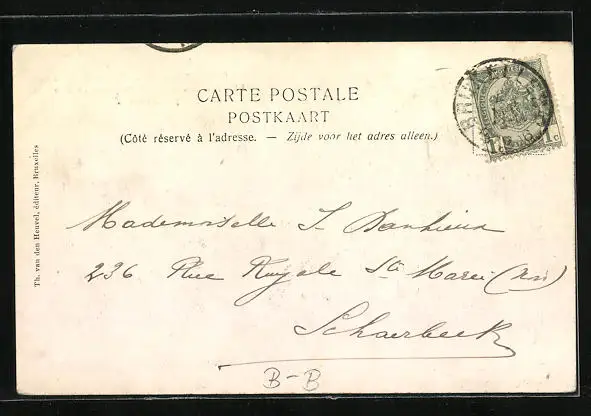 CARTE POSTALE
POSTKAART
(Côté réservé à l'adresse. — Zijde voor het adres alleen.)
BRUXELLES
1c 1c
Th. van den Heuvel, éditeur, Bruxelles
Mademoiselle J.
236 Rue Royale Ste Marie
Schaerbeek
B-B